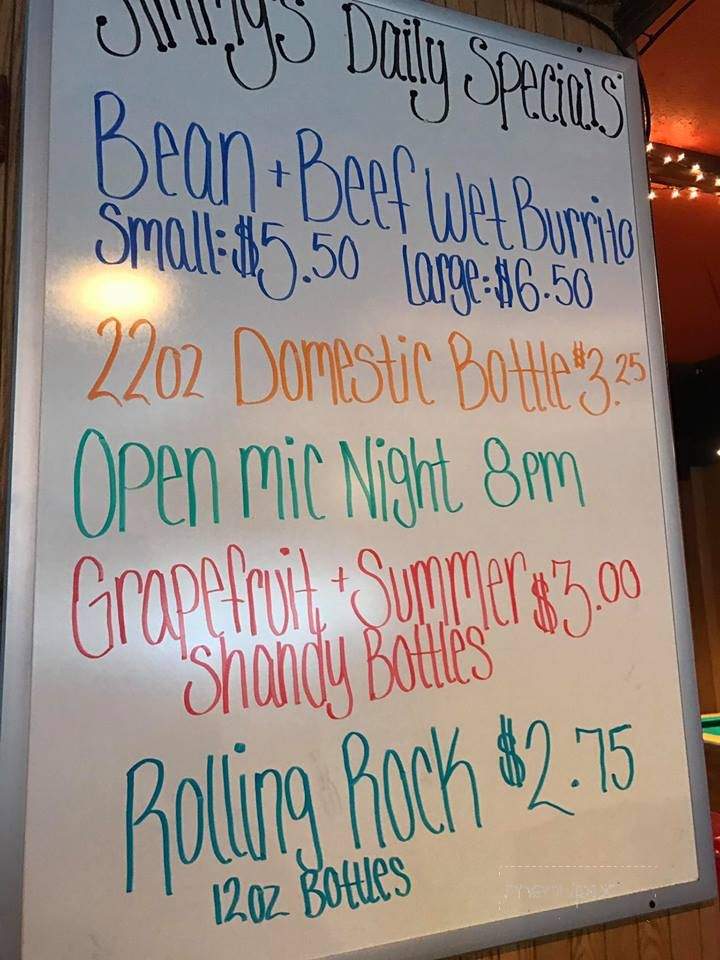 Jimmy's Daily Specials
Bean + Beef Wet Burrito
Small: $5.50 Large: $6.50
22oz Domestic Bottle $3.25
Open mic Night 8pm
Grapefruit + Summer $3.00
Shandy Bottles
Rolling Rock $2.75
12oz Bottles